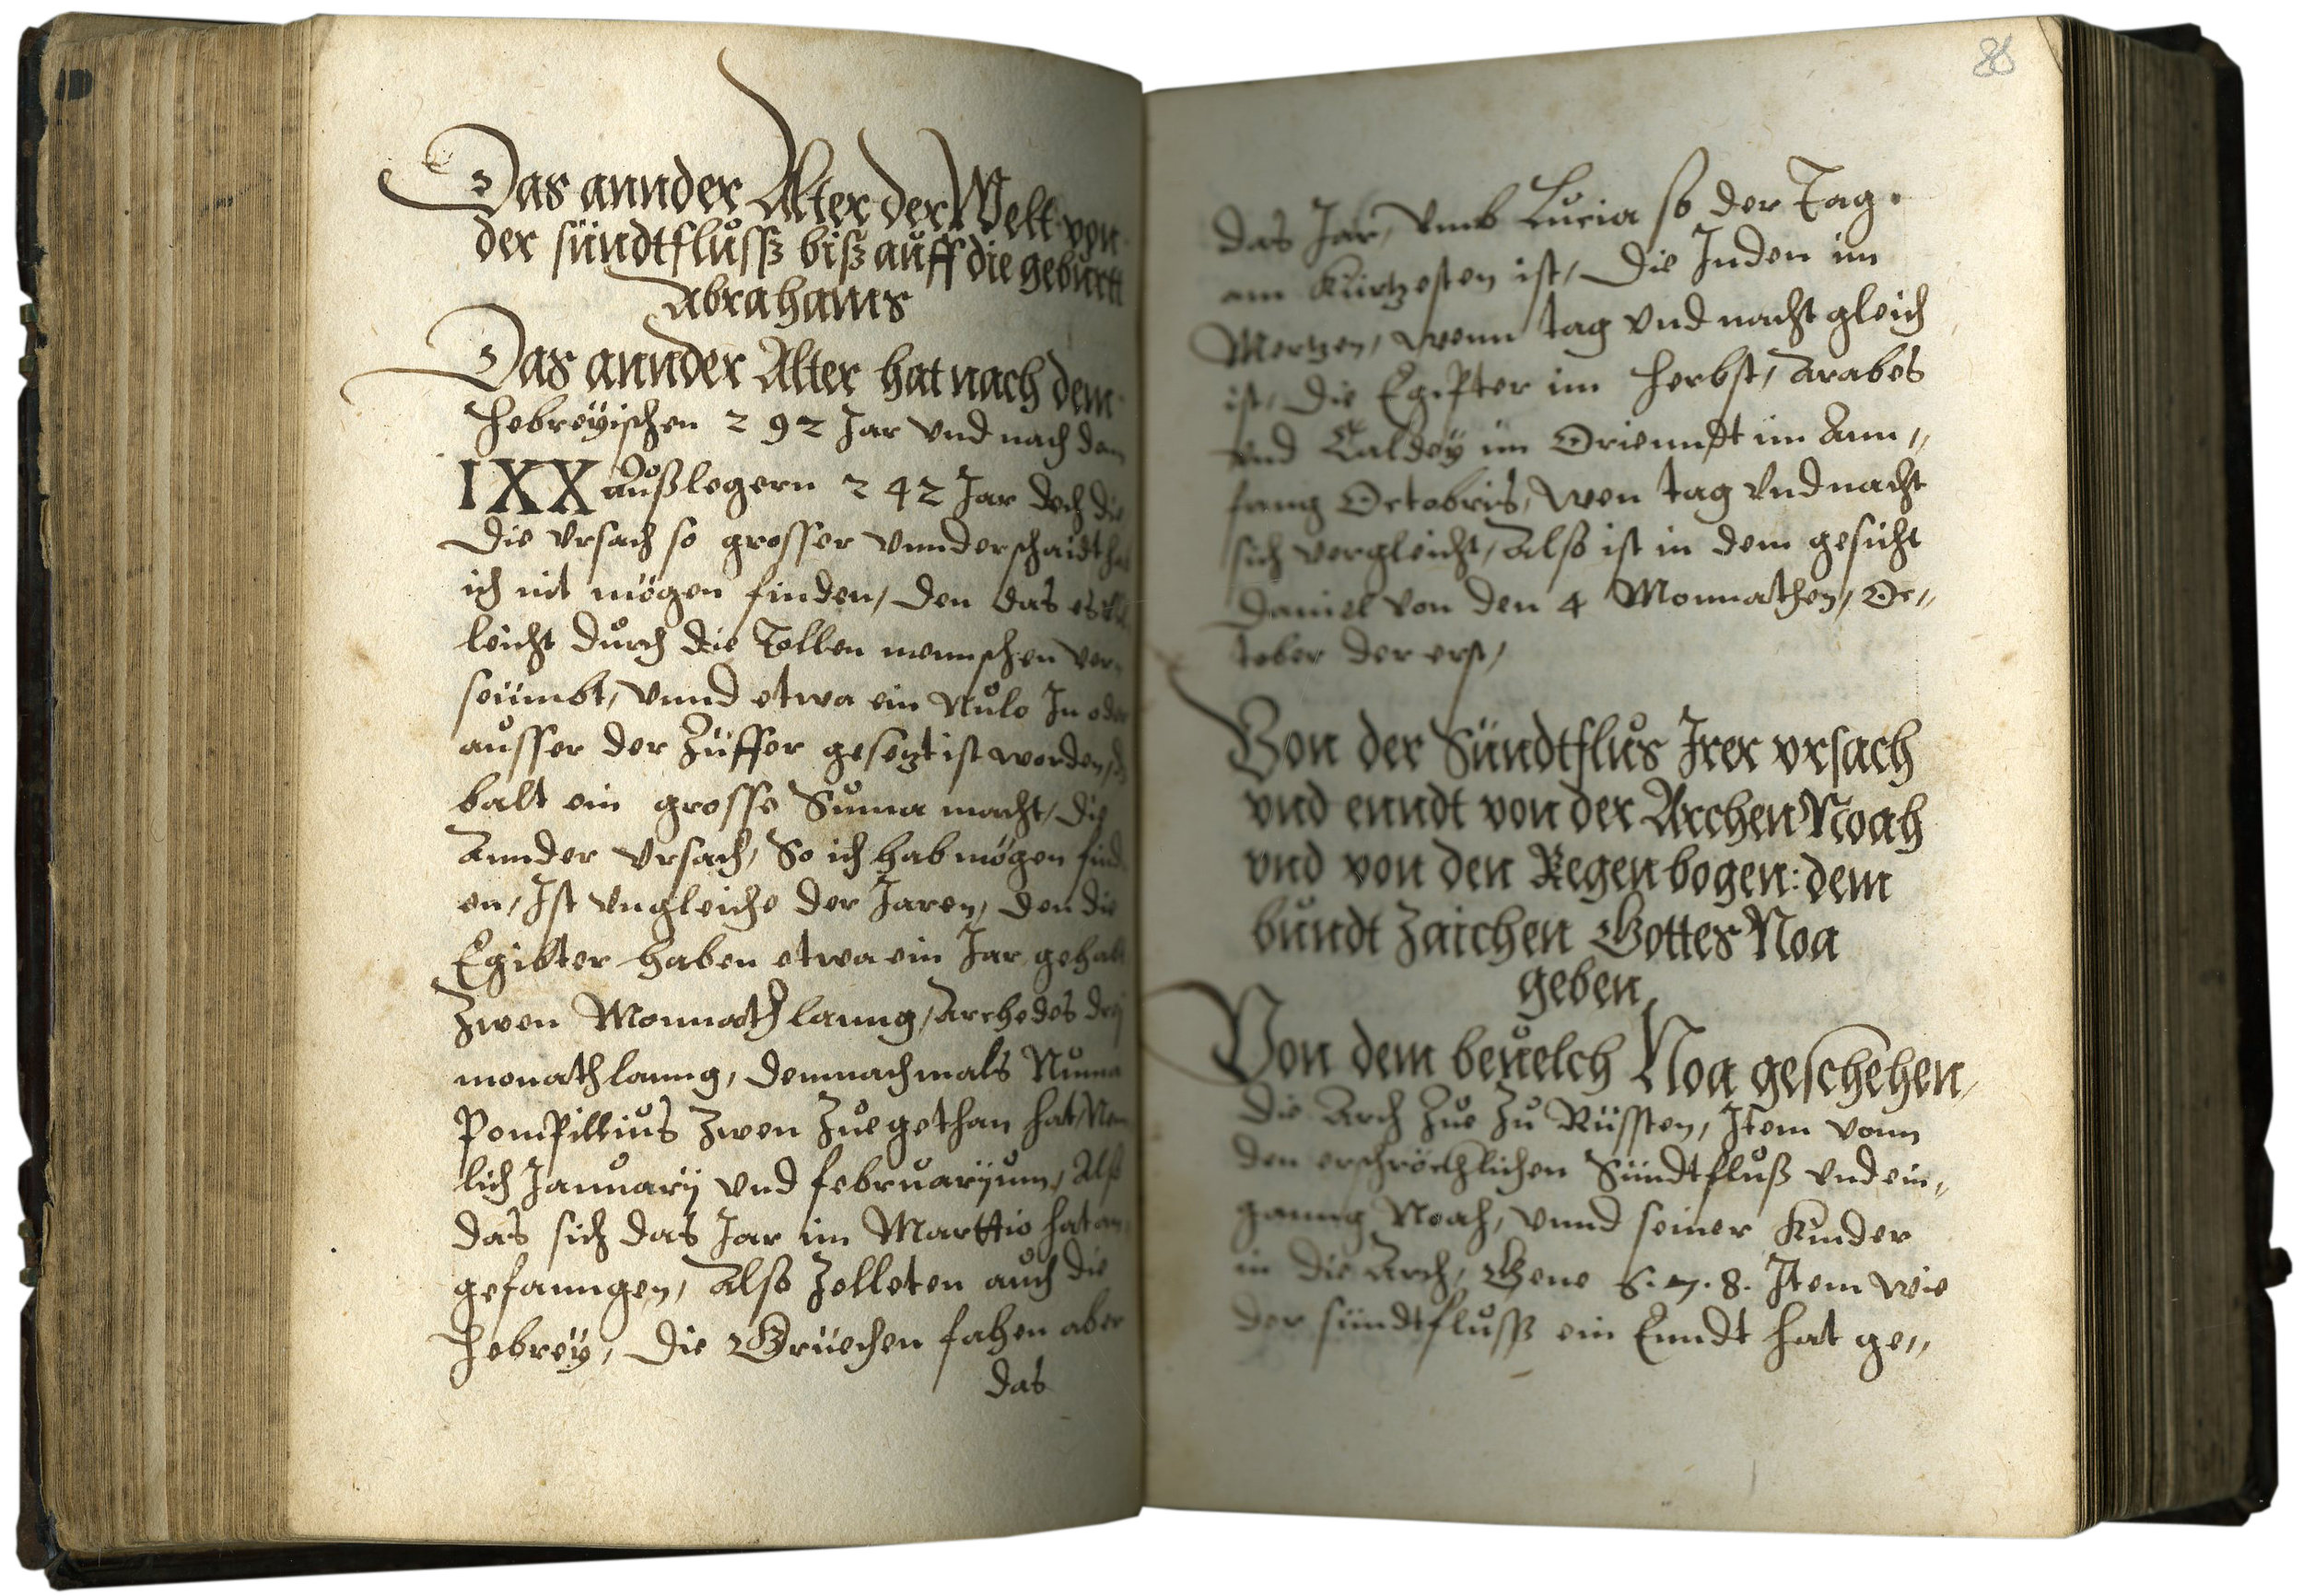 Das annder Alter der Welt von
der sündtflůssz bisz aůff die gebůrtt
Abrahams
Das annder Alter hat nach dem
Hebreÿischen 292 Jar vnd nach den
IXX außlegern 242 Jar doch die
die vrsach so grosser vnnderschaidt hab
ich nit mögen finden, den das es
leicht důrch die Tollen mennschen ver„
seümbt, vnnd etwa ein Nůlo In oder
aůsser der Züffer gesetzt ist worden,
balt ein grosse Sůma macht, die
Annder vrsach, So ich hab mögen find„
en, Ist vngleiche der Jaren, den die
Egibter haben etwa ein Jar gehabt
Zwen Monnath lanng, Archedes dreÿ
monath lanng, demnachmals Nůma
Pompillius Zwen Zůegethan hat, Nem„
lich Januarij vnd februarijum, Alß
das sich das Jar im Marttio hat an„
gefanngen, Also Zelleten aůch die
Hebreÿ, Die Grüechen fahen aber
das
88
das Jar, vmb Lucia so der Tag
am Kürtzesten ist, Die Juden im
Mertzen, wenn tag vnd nacht gleich
ist, Die Egipter im Herbst, Arabes
vnd Caldeÿ im Oriennt im Ann„
fang Octobris, wen tag vnd nacht
sich vergleicht, Also ist in dem gesicht
Daniel von den 4 Monnathen, Oc„
tober der erst,
Von der Sündtflůs Irer vrsach
vnd enndt von der Archen Noah
vnd von den Regenbogen: dem
bůndt Zaichen Gottes Noa
geben,
Von dem beůelch Noa geschehen,
Die Arch Zue Zů Rüssten, Item vonn
den erschröcklichen Sündtflůß vnd ein„
ganng Noah, vnnd seiner Kinder
in die Arch, Gene 6. 7. 8. Item wie
der sündtflůsß ein Enndt hat ge„